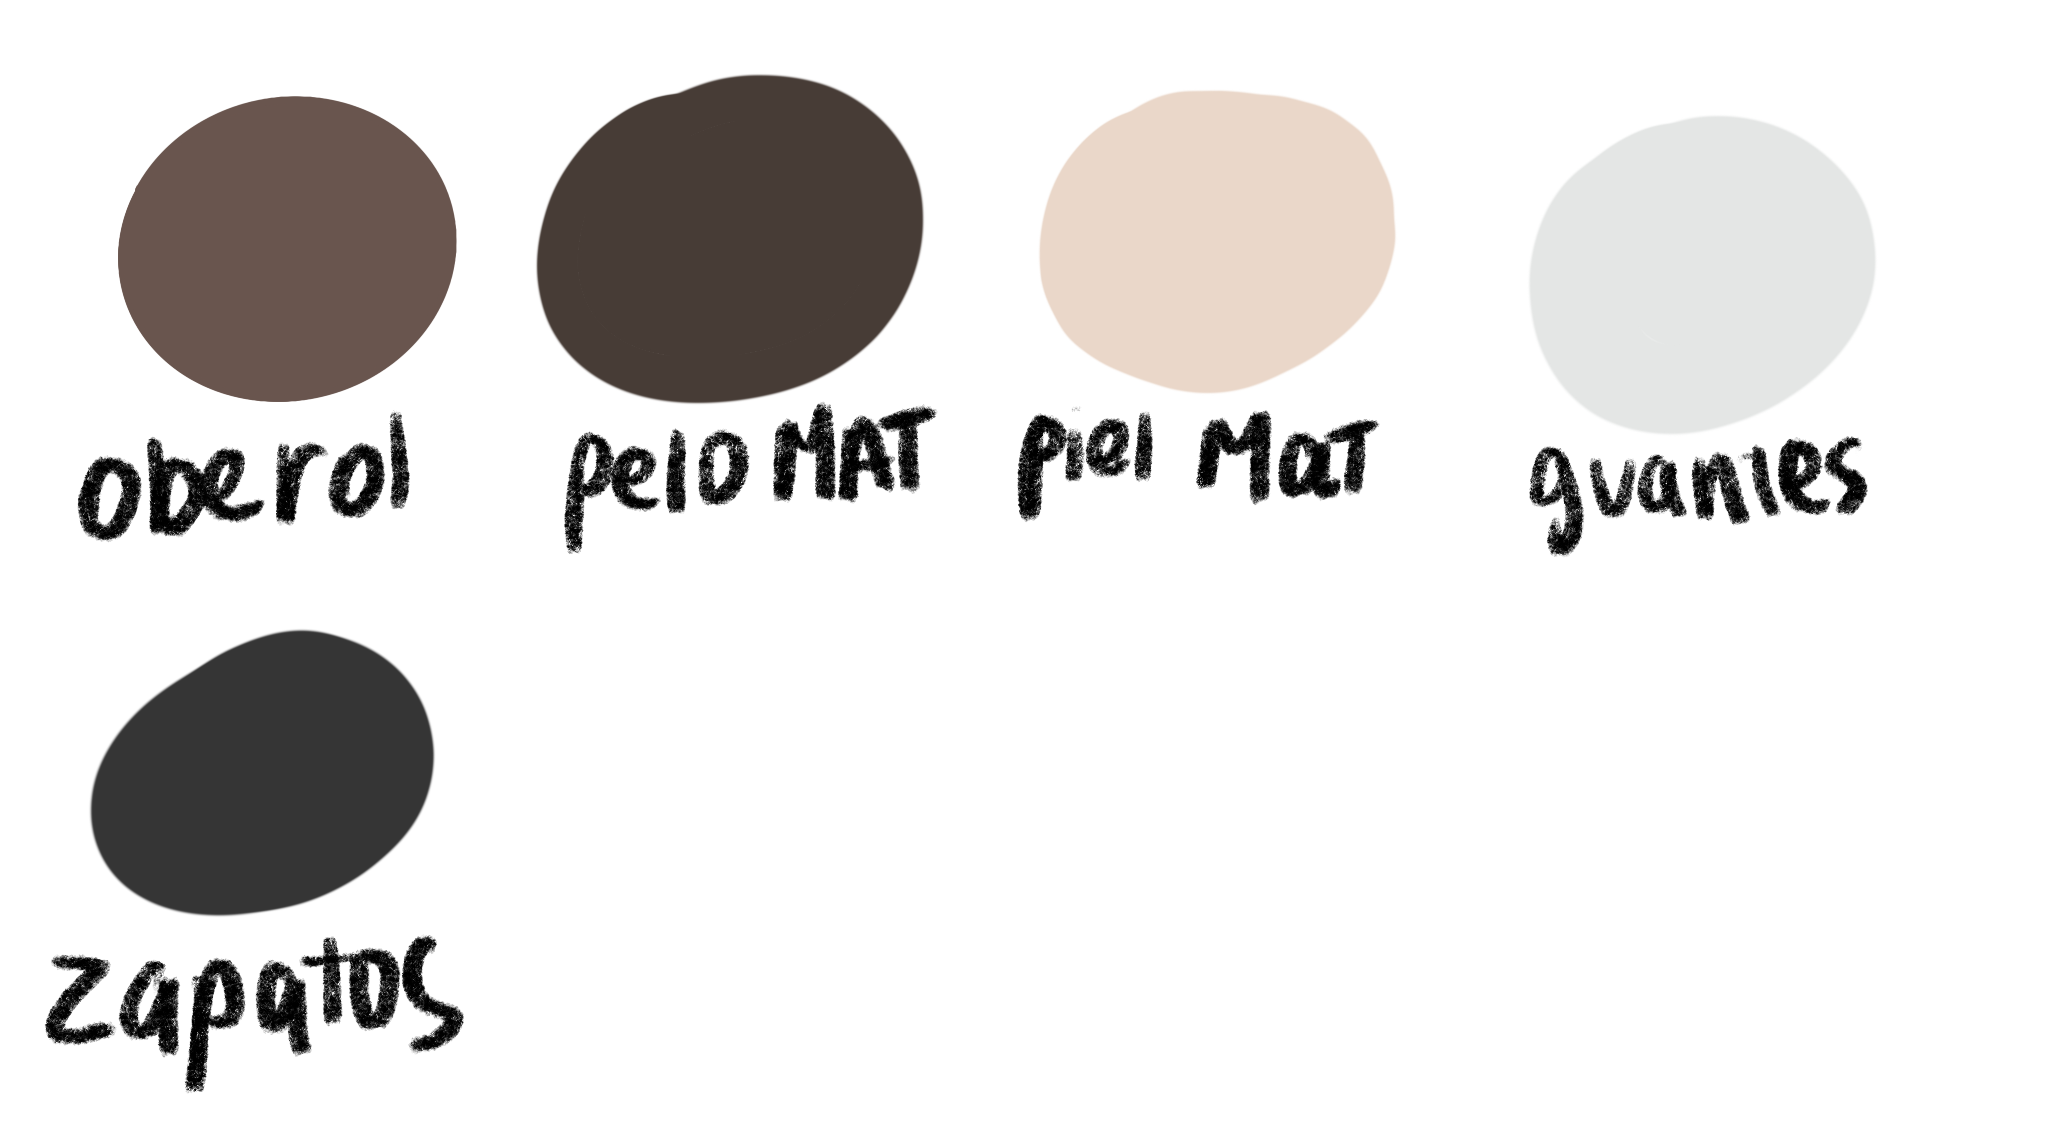 oberol
pelo MAT
piel Mat
guantes
zapatos